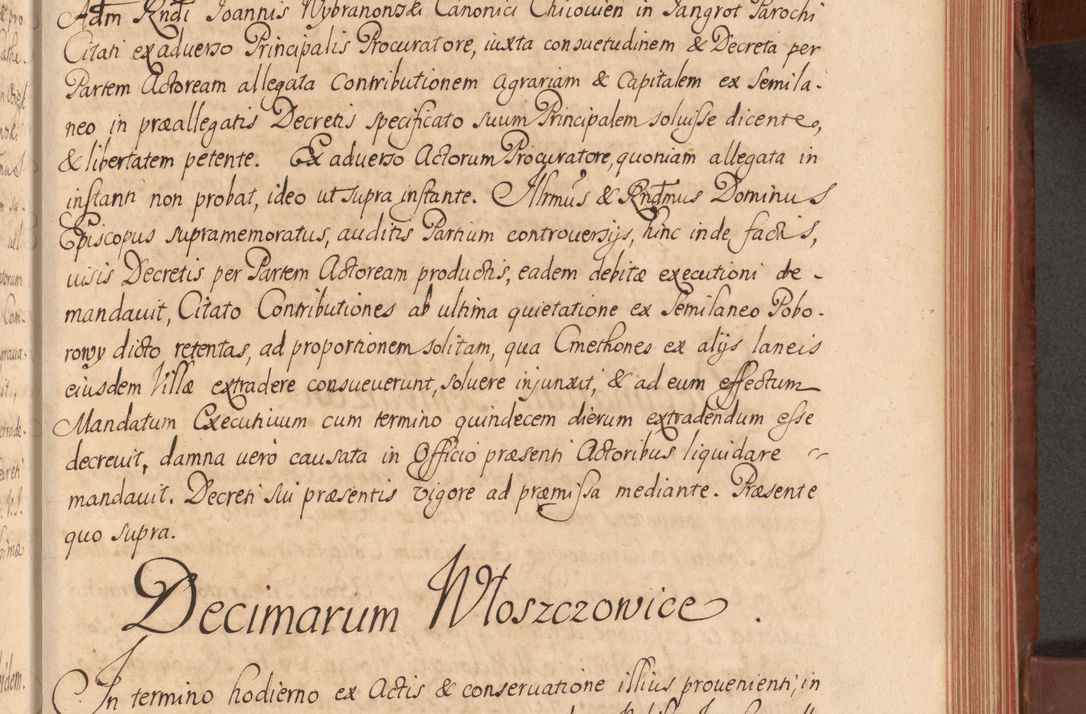 Adm Rndi Joannis Wybranowski Canonici Chiiovien in Sangrot Parochi
Citati ex adverso Principalis Procuratore, iuxta consuetudinem & Decreta per
Partem Actoream allegata Contributionem agrariam & Capitalem ex Semila-
neo in præallegatis Decretis specificato suum Principalem soluisse dicente,
& libertatem petente. Ex adverso Actorum Procuratore, quoniam allegata in
instanti non probat, ideo ut supra instante. Illrmus & Rndmus Dominus
Episcopus supramemoratus, auditis Partium controversijs, hinc inde factis,
visis Decretis per Partem Actoream productis, eadem debitæ executioni de-
mandauit, Citato Contributiones ab ultima quietatione ex Semilaneo Pobo-
rowy dicto retentas, ad proportionem solitam, qua Cmethones ex alijs laneis
eiusdem Villæ extradere consueverunt, soluere injunxit, & ad eum effectum
Mandatum Executiuum cum termino quindecem dierum extradendum esse
decreuit, damna uero causata in Officio præsenti Actoribus liquidare
mandauit. Decreti sui præsentis vigore ad præmissa mediante. Præsente
quo supra.
Decimarum Włoszczowice.
In termino hodierno ex Actis & conseruatione illius prouenienti, in